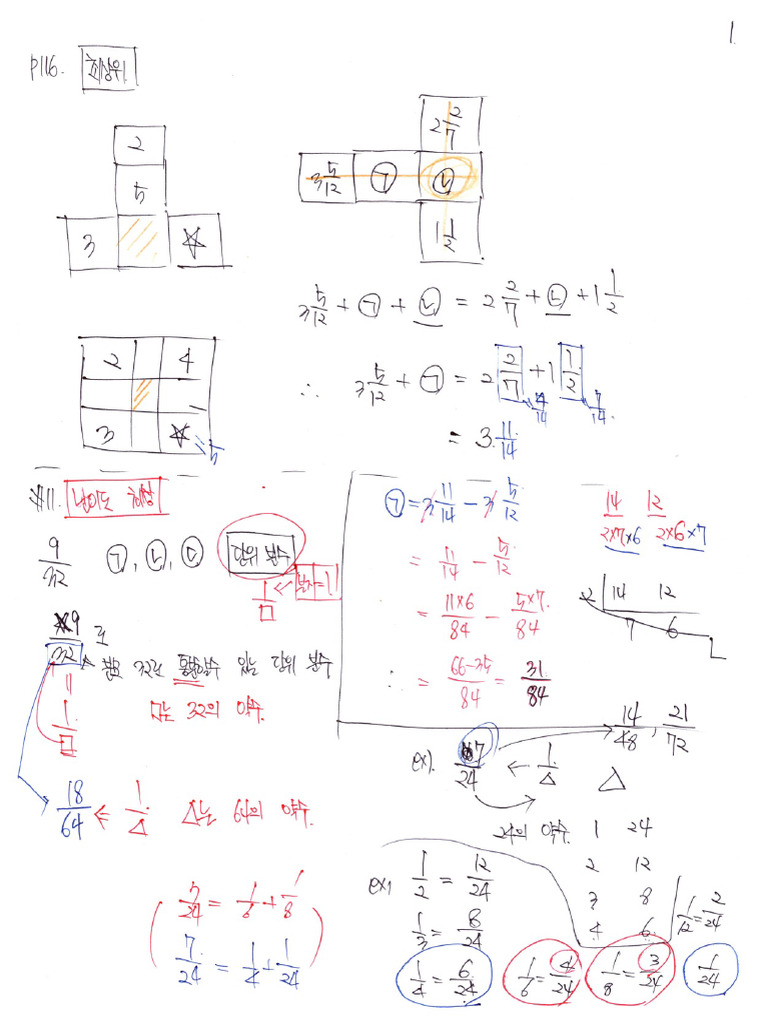 1.
P116. 최상위
2
5
3 ☆
2 2/7
3 5/12 ㉠ ㉡
1 1/2
3 5/12 + ㉠ + ㉡ = 2 2/7 + ㉡ + 1 1/2
2 4
3 ☆ = 5
∴ 3 5/12 + ㉠ = 2 2/7 + 1 1/2
4/14 7/14
= 3 11/14
#11. 난이도 최상
9/32 ㉠, ㉡, ㉢ 단위 분수
1/□ ← 분자=1
9/32 로
분모 32로 통분할 수 있는 단위 분수
= 1/□ □는 32의 약수.
18/64 ← 1/△ △는 64의 약수.
7/24 = 1/6 + 1/8
7/24 = 1/4 + 1/24
㉠ = 3 11/14 - 3 5/12
= 11/14 - 5/12
= 11×6/84 - 5×7/84
∴ = 66-35/84 = 31/84
14 12
2×7×6 2×6×7
2 14 12
7 6
ex). 7/24 ← 1/△ △
14/48, 21/72
24의 약수. 1 24
2 12
3 8
4 6
1/12 = 2/24
ex) 1/2 = 12/24
1/3 = 8/24
1/4 = 6/24 1/6 = 4/24 1/8 = 3/24 1/24